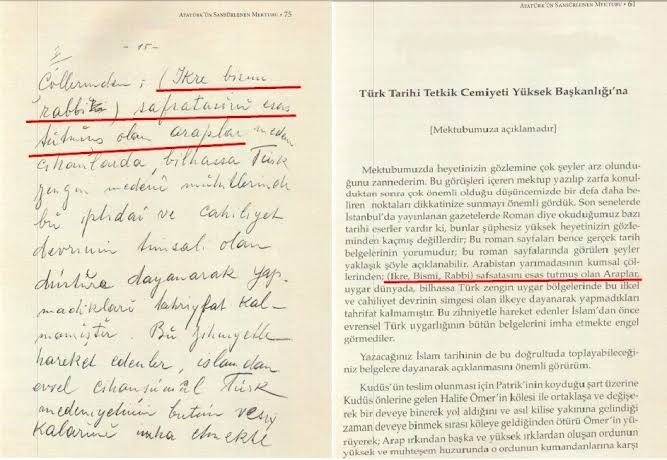 ATATÜRK'ÜN SANSÜRLENEN MEKTUBU • 75
- 15 -
Çöllerinden; (İkre bismi
rabbike) safsatasını esas
tutmuş olan araplar meden
cihanlarda, bilhassa Türk
zengin medenî muhitlerinde
bu iptidaî ve cahiliyet
devrinin timsali olan
düstûra dayanarak yap-
madıkları tahrifat kal-
mamıştır. Bu zihniyetle
hareket edenler, islamdan
evvel cihanşümûl Türk
medeniyetinin bütün vesi-
kalarını imha etmekte
ATATÜRK'ÜN SANSÜRLENEN MEKTUBU • 61
Türk Tarihi Tetkik Cemiyeti Yüksek Başkanlığı'na
[Mektubumuza açıklamadır]
Mektubumuzda heyetinizin gözlemine çok şeyler arz olundu-
ğunu zannederim. Bu görüşleri içeren mektup yazılıp zarfa konul-
duktan sonra çok önemli olduğu düşüncemizle bir defa daha be-
liren noktaları dikkatinize sunmayı önemli gördük. Son senelerde
İstanbul'da yayınlanan gazetelerde Roman diye okuduğumuz bazı
tarihi eserler vardır ki, bunlar şüphesiz yüksek heyetinizin gözlemin-
den kaçmış değillerdir; Bu roman sayfaları bence gerçek tarih
belgelerinin yorumudur; bu roman sayfalarında görülen şeyler
yaklaşık şöyle açıklanabilir. Arabistan yarımadasının kumsal çöl-
lerinden; (İkre, Bismi, Rabbi) safsatasını esas tutmuş olan Araplar,
uygar dünyada, bilhassa Türk zengin uygar bölgelerinde bu ilkel
ve cahiliyet devrinin simgesi olan ilkeye dayanarak yapmadıkları
tahrifat kalmamıştır. Bu zihniyetle hareket edenler İslam'dan önce
evrensel Türk uygarlığının bütün belgelerini imha etmekte engel
görmediler.
Yazacağınız İslam tarihinin de bu doğrultuda toplayabileceği-
niz belgelere dayanarak açıklanmasını önemli görürüm.
Kudüs'ün teslim olunması için Patrik'inin koyduğu şart üzerine
Kudüs önlerine gelen Halife Ömer'in kölesi ile ortaklaşa ve değişe-
rek bir deveye binerek yol aldığını ve asıl kilise yakınına gelindiği
zaman deveye binmek sırası köleye geldiğinden ötürü Ömer'in yü-
rüyerek; Arap ırkından başka ve yüksek ırklardan oluşan ordunun
yüksek ve muhteşem huzurunda o ordunun kumandanlarına karşı